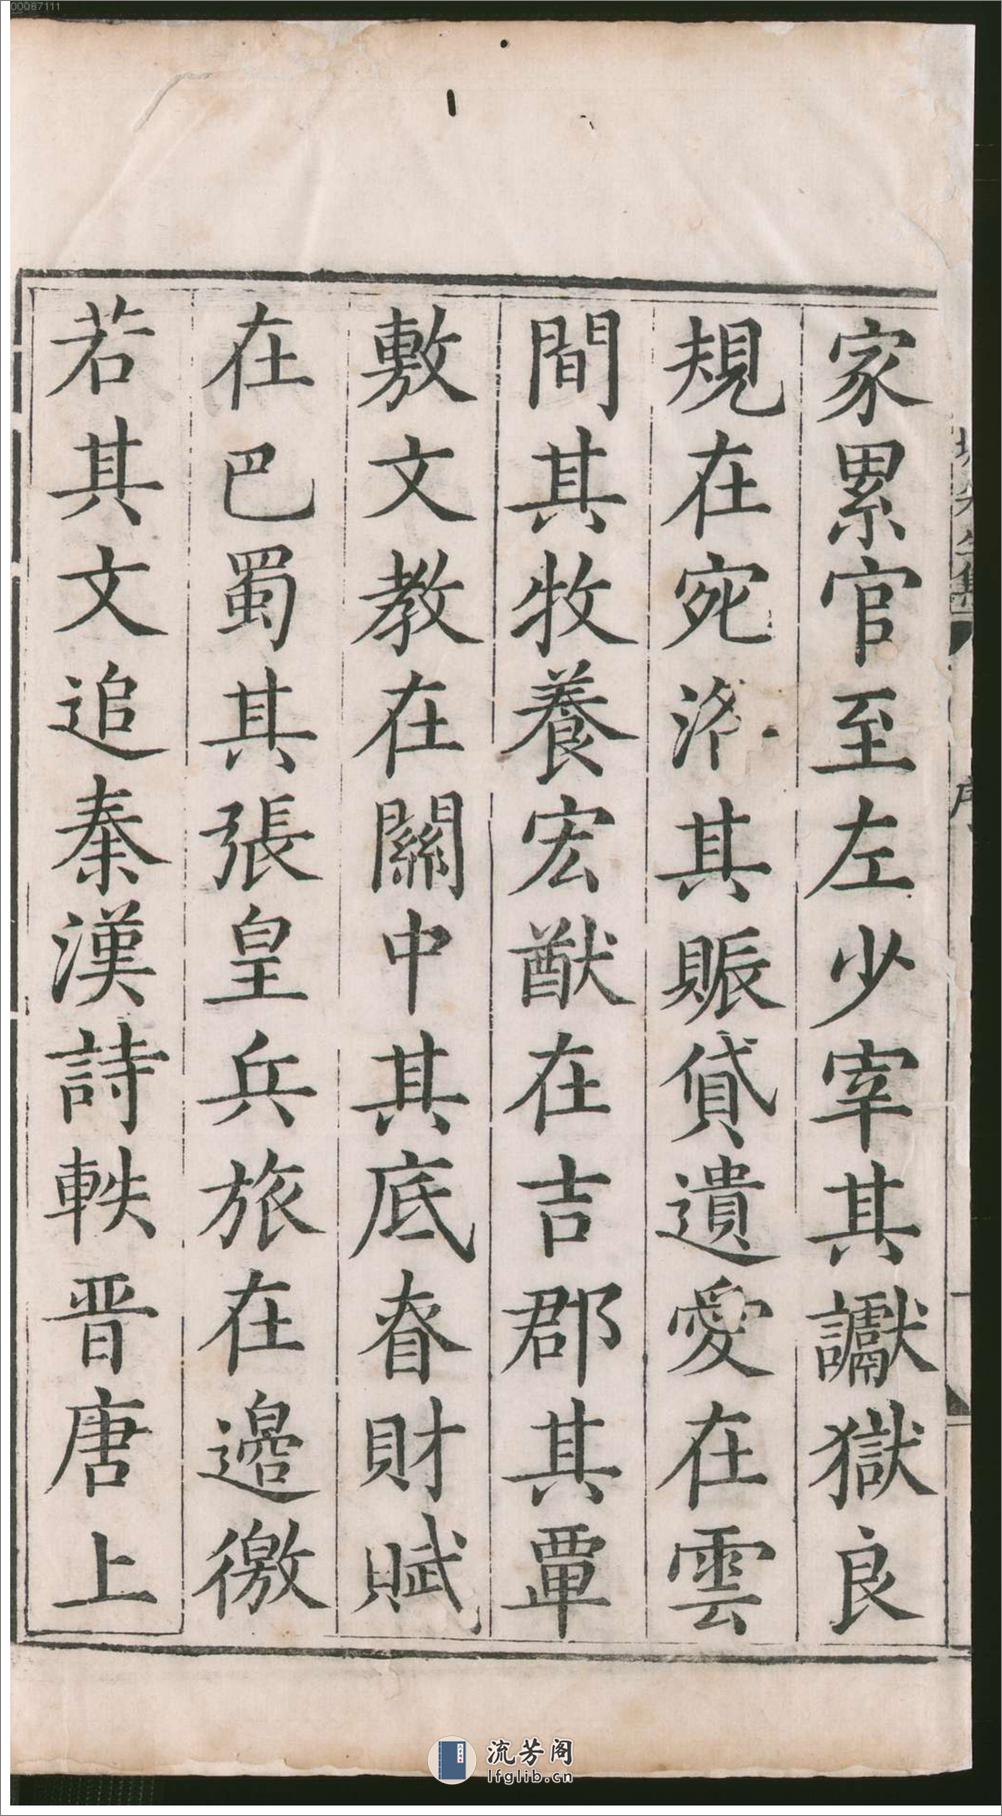 家累官至左少宰其讞獄良
規在宛洛其賑貸遺愛在雲
間其牧養宏猷在吉郡其覃
敷文教在關中其底眘財賦
在巴蜀其張皇兵旅在邉徼
若其文追秦漢詩軼晋唐上
序
00087111
流芳阁
lfglib.cn